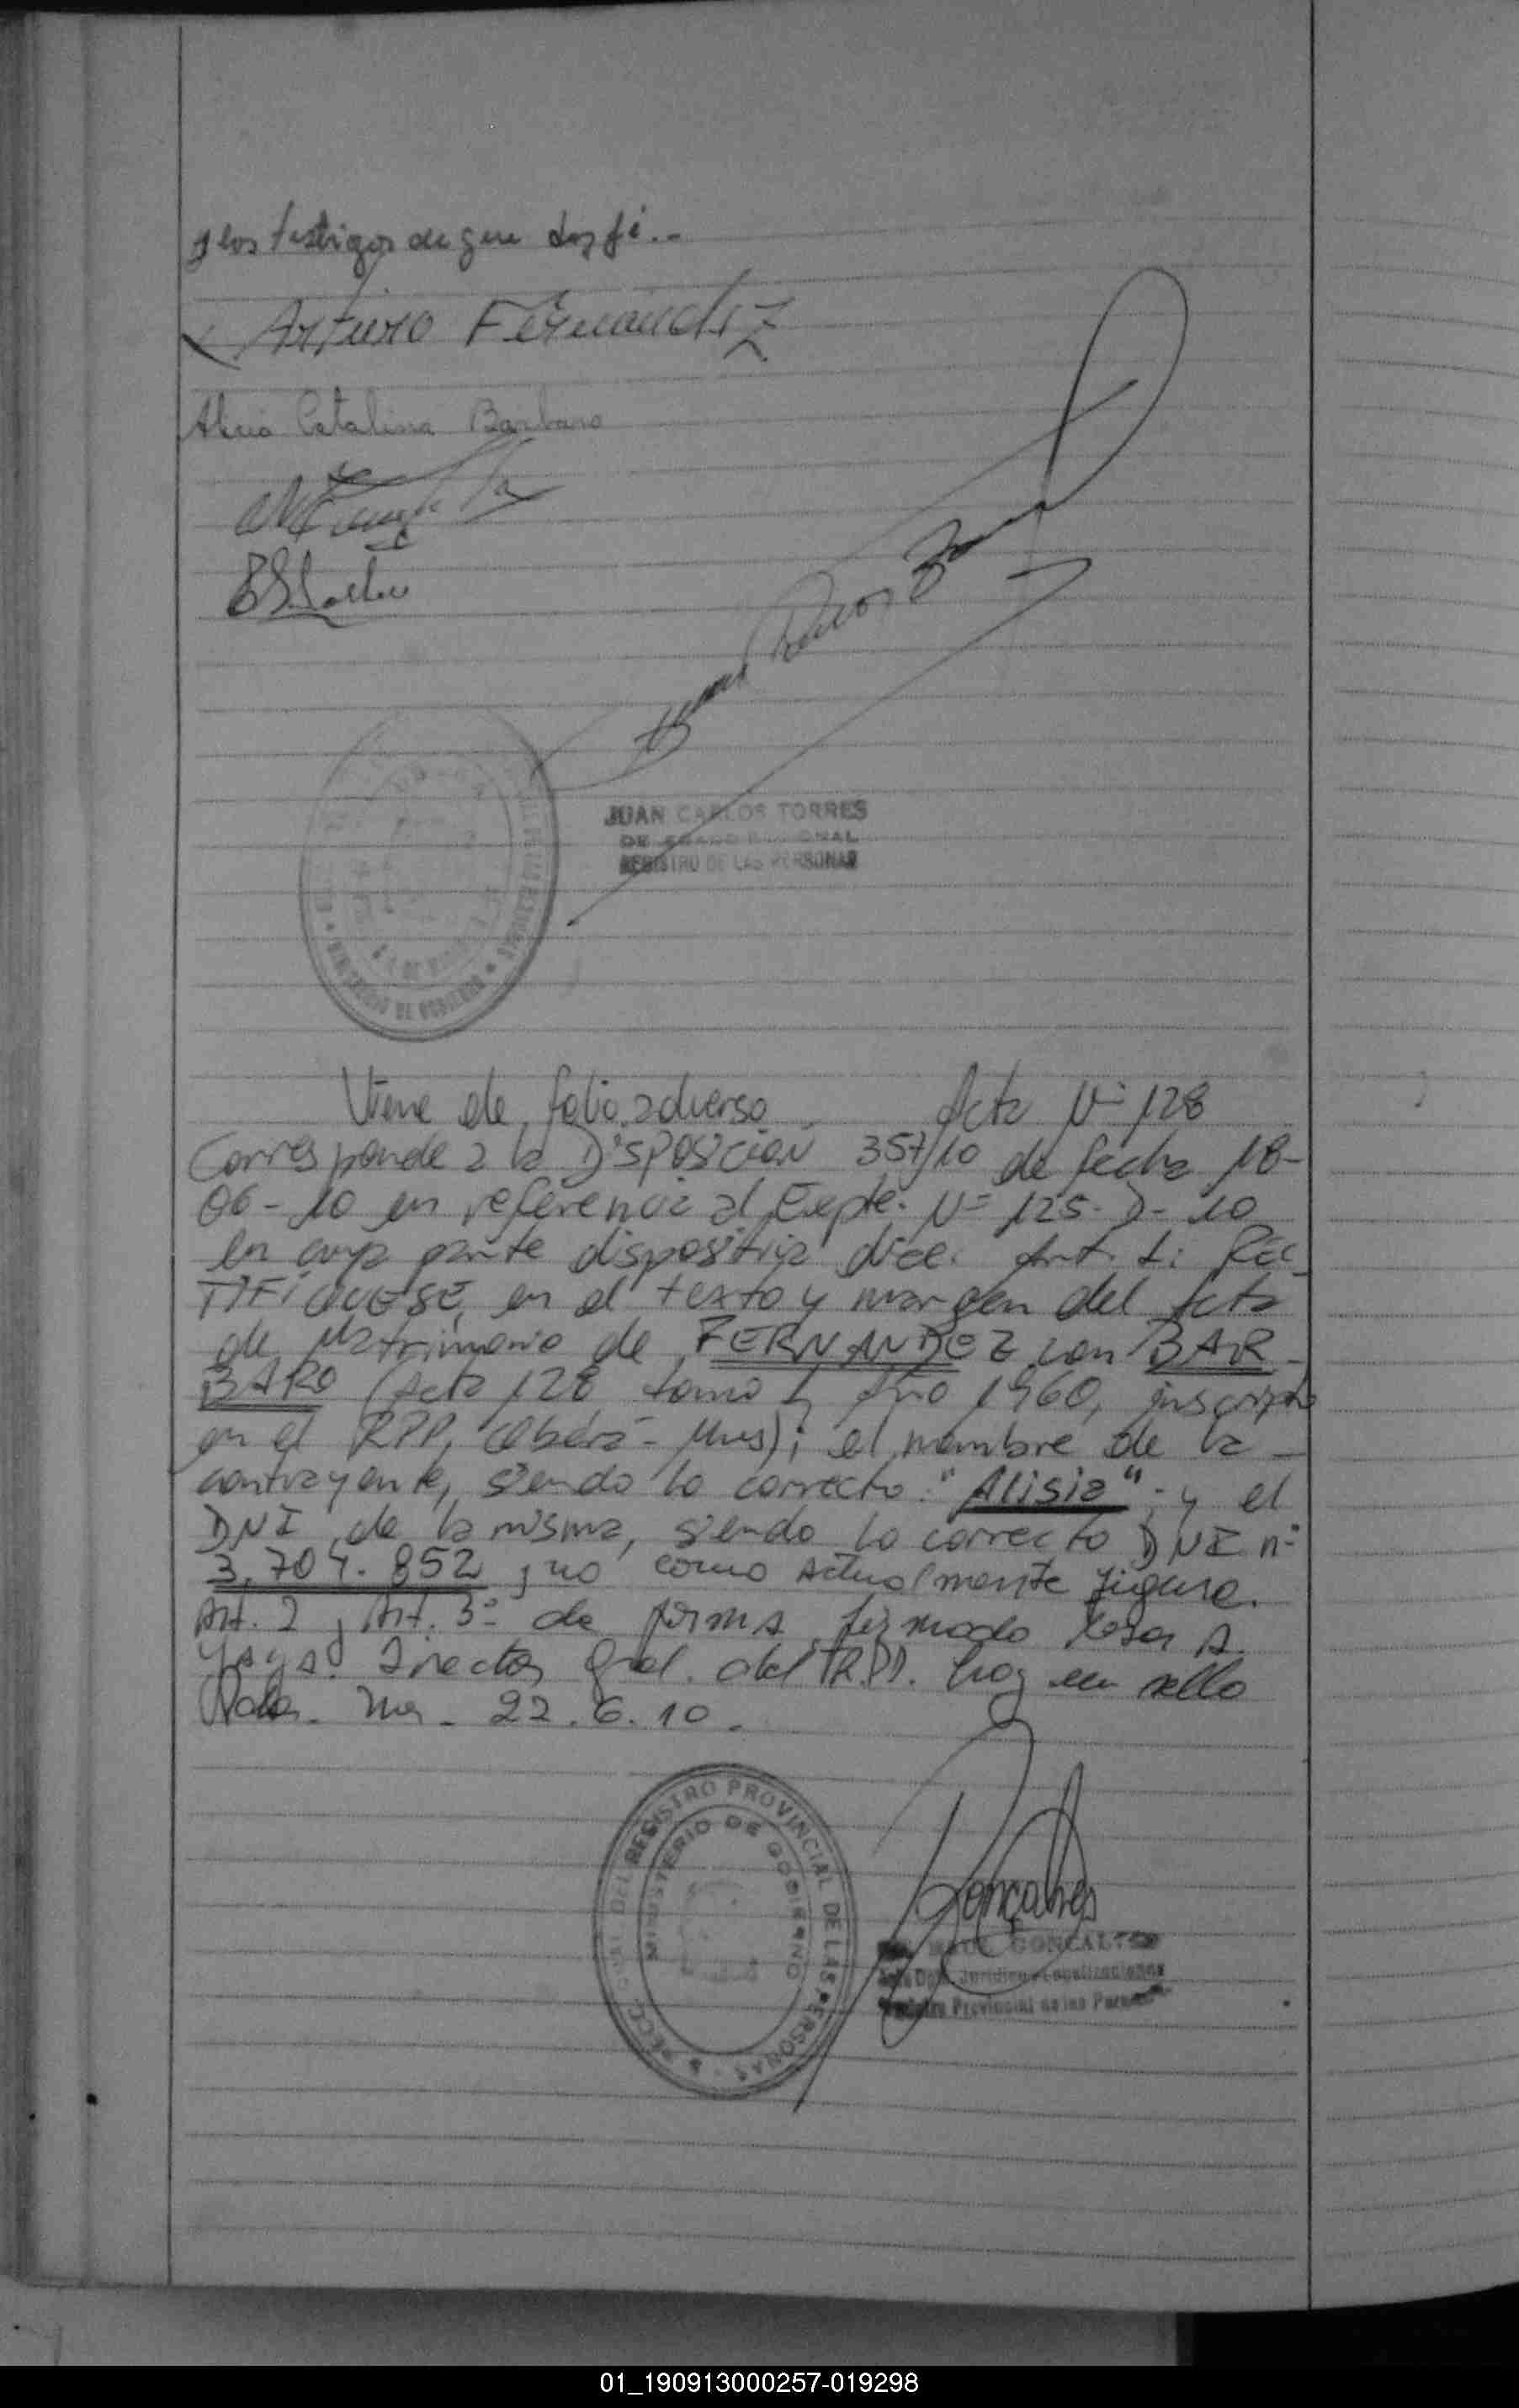 y los testigos de que doy fé..-
Arturo Fernández
Alicia Catalina Barbaro
JUAN CARLOS TORRES
REGISTRO DE LAS PERSONAS
MINISTERIO DE GOBIERNO
Viene de folio adverso Acta Nº 128
Corresponde a la DISPOSICIÓN 357/10 de fecha 18-
06-10 en referencia al Expte. Nº 125-D-10
en cuya parte dispositiva dice: Art. 1: REC
TIFIQUESE, en el texto y margen del Acta
de Matrimonio de FERNANDEZ con BAR-
BARO (Acta 128 tomo 1, Año 1960, inscripto
en el RPP, Oberá - Mnes); el nombre de la
contrayente, siendo lo correcto: "Alisia"; y el
DNI de la misma, siendo lo correcto DNI nº
3.704.852, no como actualmente figura.
Art. 2 y Art. 3º de forma firmado
Director Gral. del R.P.P. hoy en sello
22.6.10.
REGISTRO PROVINCIAL DE LAS PERSONAS
MINISTERIO DE GOBIERNO
Gonçalves
RAUL GONCALVES
Registro Provincial de las Personas
01_190913000257-019298